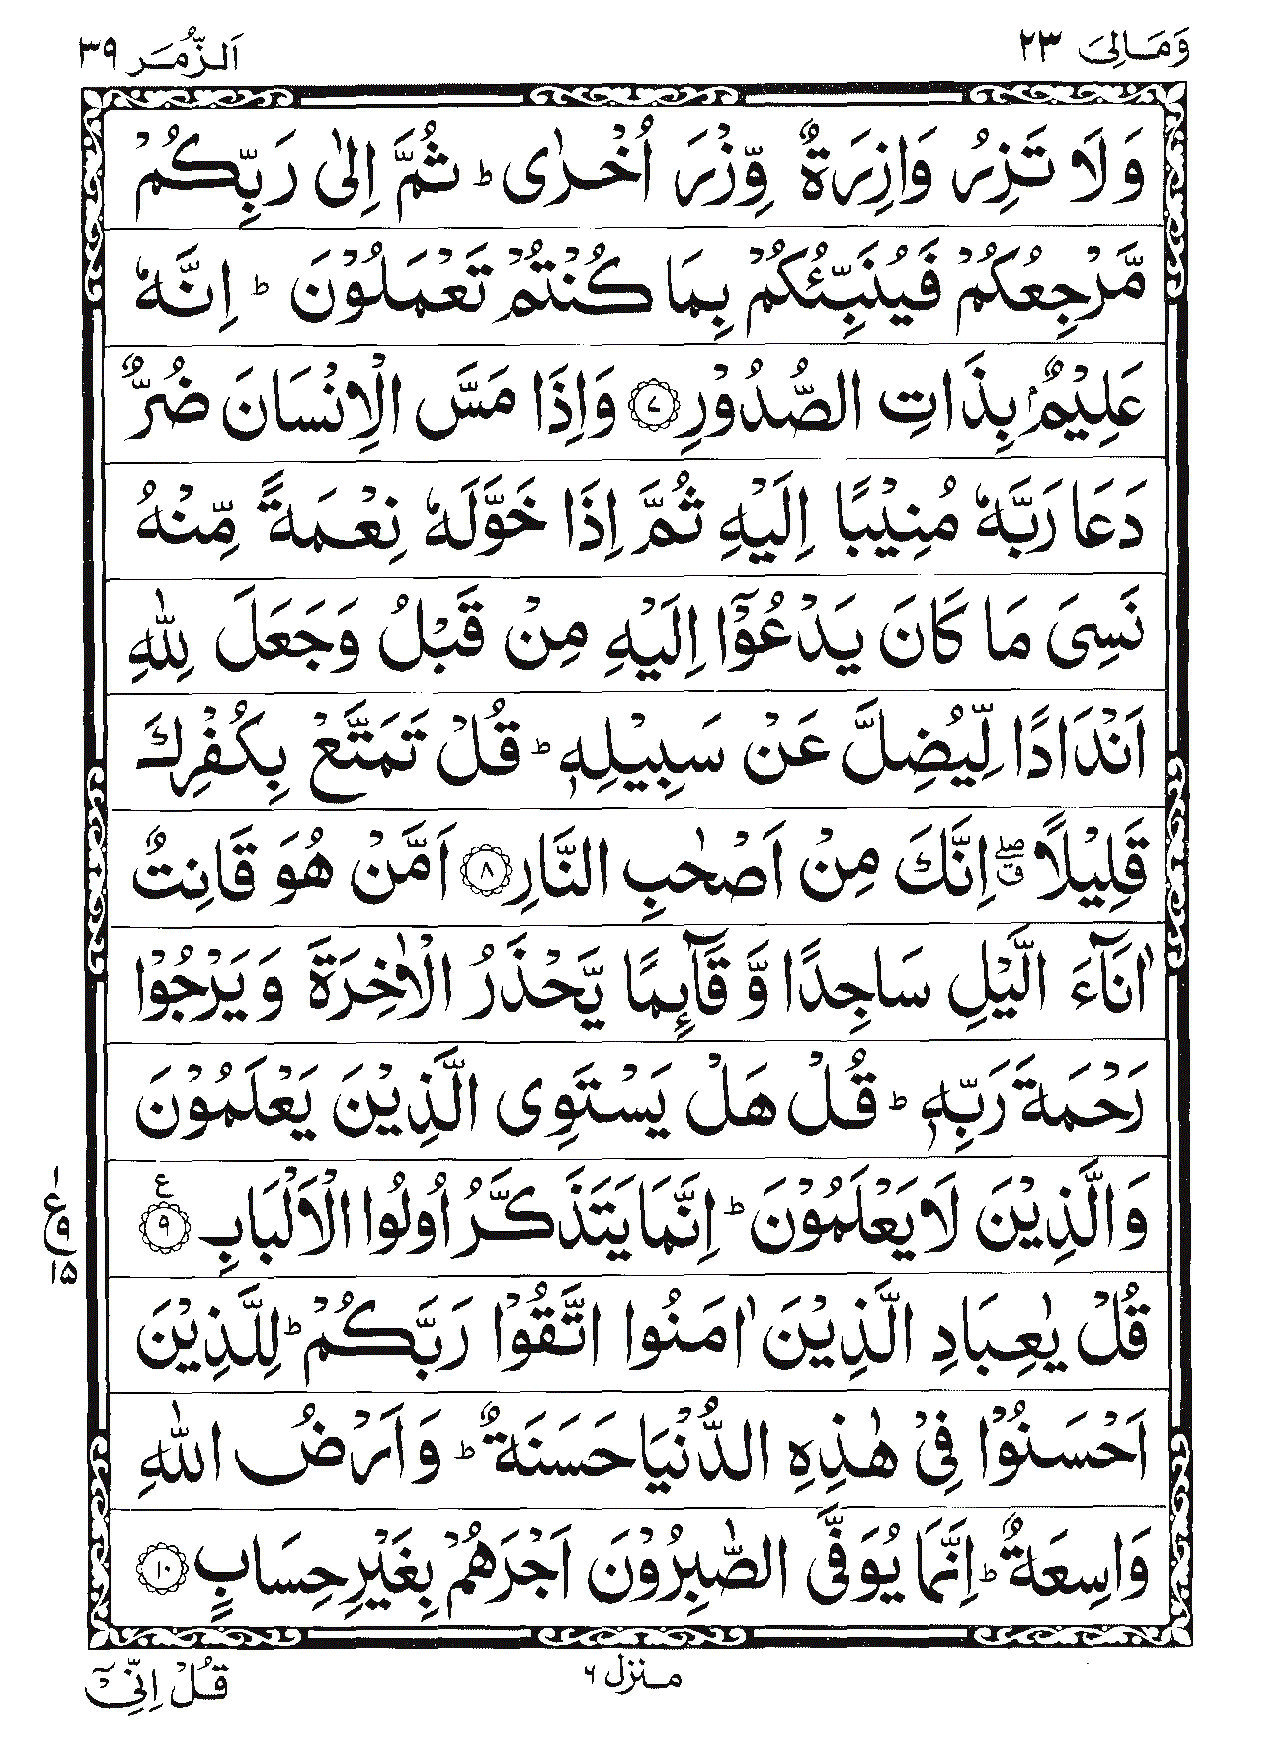 وَمَالِیَ ٢٣
اَلزُّمَر ٣٩
وَ لَا تَزِرُ وَازِرَةٌ وِّزْرَ اُخْرٰی ؕ ثُمَّ اِلٰی رَبِّكُمْ
مَّرْجِعُكُمْ فَیُنَبِّئُكُمْ بِمَا كُنْتُمْ تَعْمَلُوْنَ ؕ اِنَّهٗ
عَلِیْمٌۢ بِذَاتِ الصُّدُوْرِ ﴿٧﴾ وَاِذَا مَسَّ الْاِنْسَانَ ضُرٌّ
دَعَا رَبَّهٗ مُنِیْبًا اِلَیْهِ ثُمَّ اِذَا خَوَّلَهٗ نِعْمَةً مِّنْهُ
نَسِیَ مَا كَانَ یَدْعُوْۤا اِلَیْهِ مِنْ قَبْلُ وَجَعَلَ لِلّٰهِ
اَنْدَادًا لِّیُضِلَّ عَنْ سَبِیْلِهٖ ؕ قُلْ تَمَتَّعْ بِكُفْرِكَ
قَلِیْلًا ۖۗ اِنَّكَ مِنْ اَصْحٰبِ النَّارِ ﴿٨﴾ اَمَّنْ هُوَ قَانِتٌ
اٰنَآءَ الَّیْلِ سَاجِدًا وَّ قَآىِٕمًا یَّحْذَرُ الْاٰخِرَةَ وَ یَرْجُوْا
رَحْمَةَ رَبِّهٖ ؕ قُلْ هَلْ یَسْتَوِی الَّذِیْنَ یَعْلَمُوْنَ
وَ الَّذِیْنَ لَا یَعْلَمُوْنَ ؕ اِنَّمَا یَتَذَكَّرُ اُولُوا الْاَلْبَابِ ﴿٩﴾ ع
١ ع ٩ ١٥
قُلْ یٰعِبَادِ الَّذِیْنَ اٰمَنُوا اتَّقُوْا رَبَّكُمْ ؕ لِلَّذِیْنَ
اَحْسَنُوْا فِیْ هٰذِهِ الدُّنْیَا حَسَنَةٌ ؕ وَ اَرْضُ اللّٰهِ
وَاسِعَةٌ ؕ اِنَّمَا یُوَفَّی الصّٰبِرُوْنَ اَجْرَهُمْ بِغَیْرِ حِسَابٍ ﴿١٠﴾
منزل ٦
قُلْ اِنِّیْۤ